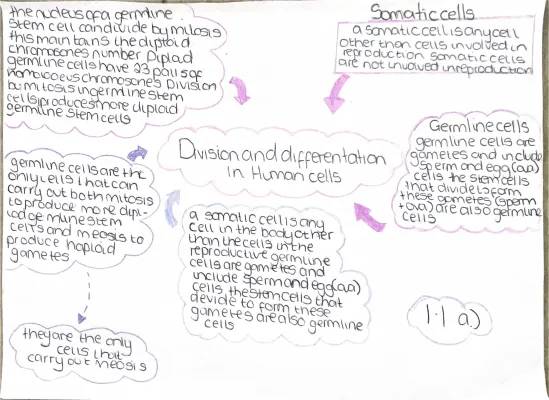 the nucleus of a germline
stem cell can divide by mitosis
this maintains the diploid
chromosones number Diploid
germline cells have 23 pairs of
homologous chromosones Division
by mitosis in germline stem
cells produces more diploid
germline stem cells
Somatic cells
a somatic cell is any cell
other than cells involved in
reproduction somatic cells
are not involved in reproduction
Division and differentation
in Human cells
Germline cells
germline cells are
gametes and include
sperm and egg (ova)
cells the stem cells
that divide to form
these gametes (sperm
+ ova) are also germline
cells
germline cells are the
only cells that can
carry out both mitosis
to produce more dipl-
stem
cells and meosis to
produce haploid
gametes
a somatic cell is any
cell in the body other
than the cells in the
reproductive germline
cells are gametes and
include sperm and egg (ova)
cells, the stem cells that
devide to form these
gametes are also germline
cells
they are the only
cells that
carry out meosis
1.1 a.)